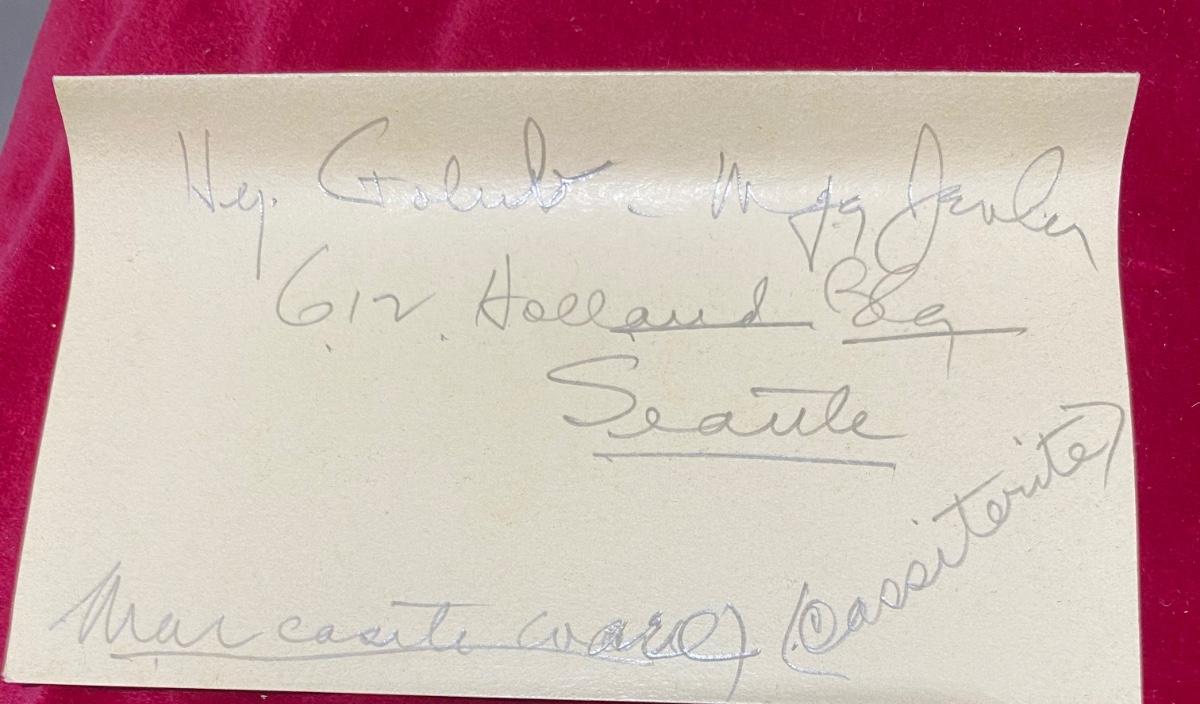 Hy. Golub - Mfg Jewler
612 Holland Blg
Seattle
Marcasite (Cassiterite)